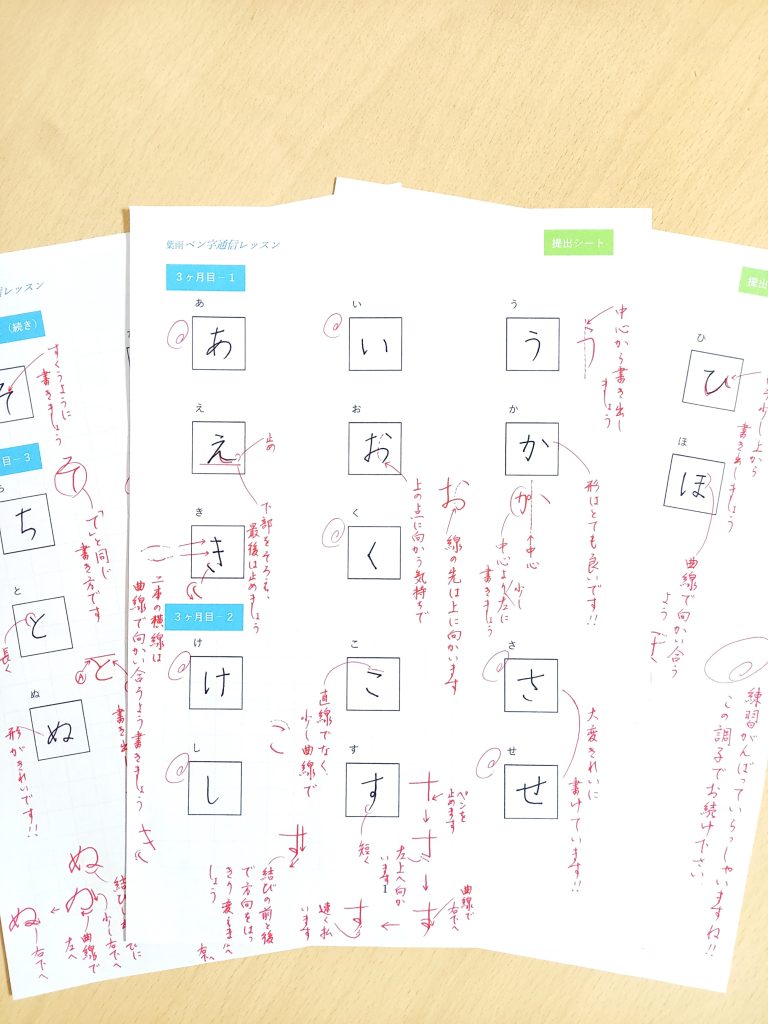 葉雨 ペン字通信レッスン
提出シート
3ヶ月目－1
あ
い
う
あ
い
う
中心から書き出し
ましょう
え
お
か
え
お
か
止め
下部をそろえ、
最後は止めましょう
上の点に向かう気持ちで
お
線の先は上に向かいます
形はとても良いです!!
か
中心
中心より少し左に
書きましょう
き
く
き
く
二本の横線は
曲線で向かい合うよう書きましょう
3ヶ月目－2
け
こ
さ
け
こ
さ
直線でなく
少し曲線で
こ
大変きれいに
書けています!!
し
す
せ
し
す
せ
短く
ペンを
止めます
左上へ向か
います
曲線で
右下へ
速く払
います
結びの前と後
で方向をはっ
きり変えま
しょう
1
レッスン
（続き）
そ
すくうように
書きましょう
そ
「て」と同じ
書き方です
目－3
ち
と
と
長く
と
書き出
ぬ
ぬ
形がきれいです!!
ぬ
ぬ
少し右下へ
曲線で
左へ
ぬ
右下へ
提出
ひ
ひ
少し上から
書き出しましょう
ほ
ほ
曲線で向かい合う
よう
練習がんばっていらっしゃいますね!!
この調子でお続け下さい